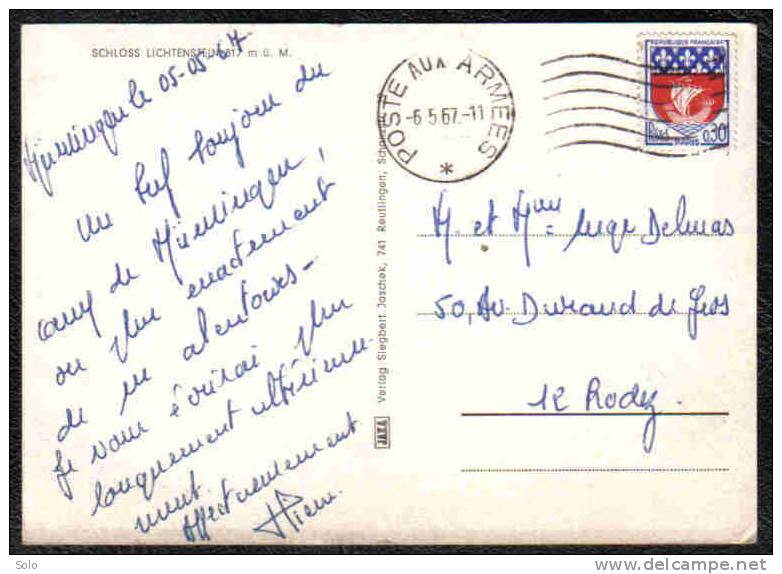 SCHLOSS LICHTENSTEIN, 817 m ü. M.
Münsingen le 05-05-67
Un bref bonjour du
camp de Münsingen,
ou plus exactement
de ses alentours -
Je vous écrirai plus
longuement ultérieure-
ment.
Affectueusement
Pierre.
Verlag Siegbert Jaschek, 741 Reutlingen,
POSTE AUX ARMEES
-6.5.67.-11
*
REPUBLIQUE FRANÇAISE
PARIS
0,30
M. et Mme Delmas
50, Av. Durand de Gros
12 Rodez
Solo
delcampe.net